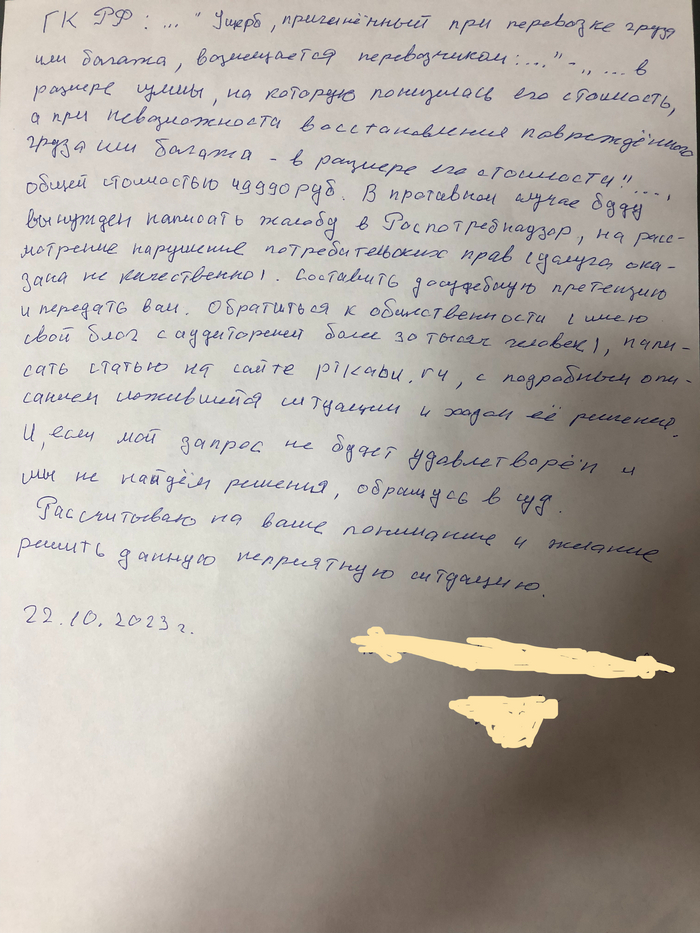 ГК РФ: ... "Ущерб, причинённый при перевозке груза
или багажа, возмещается перевозчиком:..." - "... в
размере суммы, на которую понизилась его стоимость,
а при невозможности восстановления повреждённого
груза или багажа - в размере его стоимости"...,
общей стоимостью 49990 руб. В противном случае буду
вынужден написать жалобу в Роспотребнадзор, на расс-
мотрение нарушение потребительских прав (услуга ока-
зана не качественно). Составить досудебную претензию
и передать вам. Обратиться к общественности (имею
свой блог с аудиторией более 30 тысяч человек), напи-
сать статью на сайте pikabu.ru, с подробным опи-
санием сложившейся ситуации и ходом её решений.
И, если мой запрос не будет удовлетворён и
мы не найдём решения, обращусь в суд.
Рассчитываю на ваше понимание и желание
решить данную неприятную ситуацию.
22.10.2023 г.